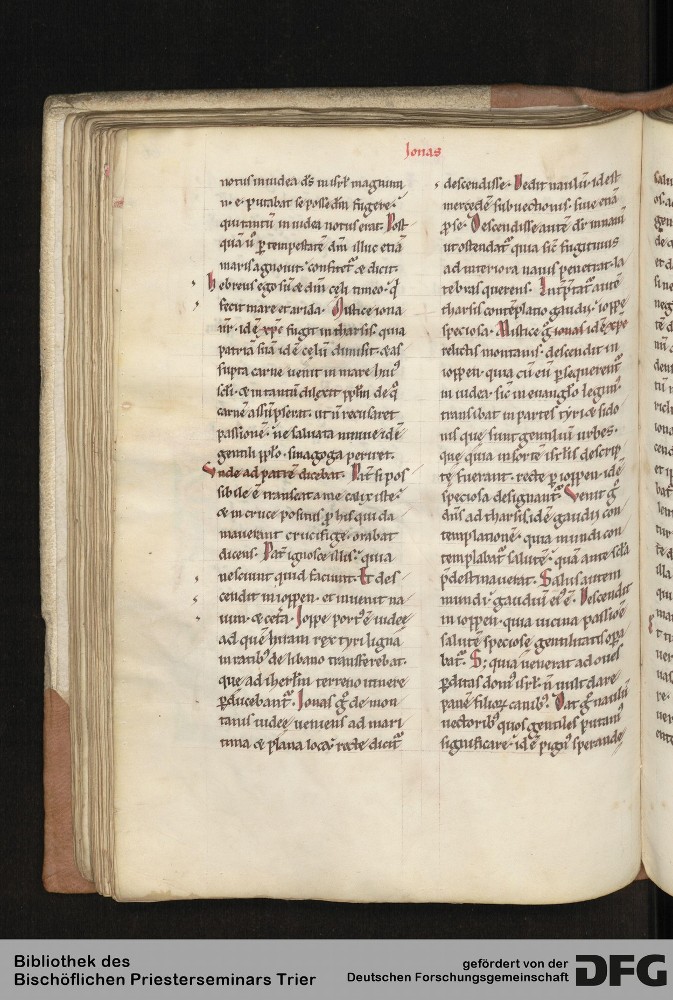 Jonas
notus in iudea ds̄ in isrl̄ magnum
n̄. e. putabat se posse dm̄ fugere.
qui tantū in iudea notus erat. Post
quā ū ꝑ tempestatē dm̄ illuc etiā
maris agnouit. confitetᷣ & dicit.
hebreus ego sū & dm̄ celi timeo. q̄
fecit mare et arida. Mistice iona
nr̄. id ē xp̄c fugit in tharsis. quia
patriā suā id ē celū dimisit. & as
supta carne uenit in mare huiꝰ
scl̄i. & in tantū dilexit ppl̄m de q̄
carnē assūpserat. ut n̄ recusaret
passionē. ne saluata niniue id ē
gentili ppl̄o. sinagoga periret.
Unde ad patrē dicebat. Pat̄ si pos
sibile ē transeat a me calix iste.
& in cruce positus ꝓ his qui da
mauerant crucifige. orabat
dicens. Pat̄ ignosce illis. quia
nesciunt quid faciunt. Et des
cendit in ioppen. et inuenit na
uim. & cet̄a. Joppe portꝰ ē iudee
ad quē hiram rex tyri ligna
in ratibꝰ de libano transferebat.
que ad iherl̄m terreno itinere
ꝑducebantᷣ. Jonas g̊ de mon
tanis iudee ueniens ad mari
tima & plana loca. recte dicitᷣ
descendisse. Dedit naulū. id est
mercedē subuectionis. siue etiā
ꝓ se. Descendisse autē dr̄ in naui
ut ostendatᷣ quia sic̄ fugitiuus
ad interiora nauis penetrat. la
tebras querens. Int̄p̄tatᷣ autē
tharsis contēplatio gaudii. ioppe
speciosa. Mistice g̊ ionas id ē xp̄c
relictis montanis. descendit in
ioppen. quia cū eū ꝑsequerentᷣ
in iudea. sic̄ in euangl̄io legimꝰ.
transibat in partes tyri & sido
nis que sunt gentiliū urbes.
que quia in sorte isrl̄is descrip
te fuerant. recte ꝑ ioppen. id ē
speciosa designantᷣ. Uenit g̊
dn̄s ad tharsis. id ē gaudii con
templationē. quia mundi con
templabatᷣ salutē. quā ante scl̄a
p̄destinauerat. Salus autem
mundi. gaudiū eiꝰ ē. Descendit
in ioppen. quia uicina passioē
salutē speciose gentilitatis oꝑa
batᷣ. S; quia uenerat ad oues
ꝑditas domꝰ isrl̄. n̄ uult dare
panē filioꝝ canibꝰ. Dat g̊ naulū
uectoribꝰ quos gentiles putamꝰ
significare. id ē pignꝰ sperande
Bibliothek des
Bischöflichen Priesterseminars Trier
gefördert von der
Deutschen Forschungsgemeinschaft
DFG